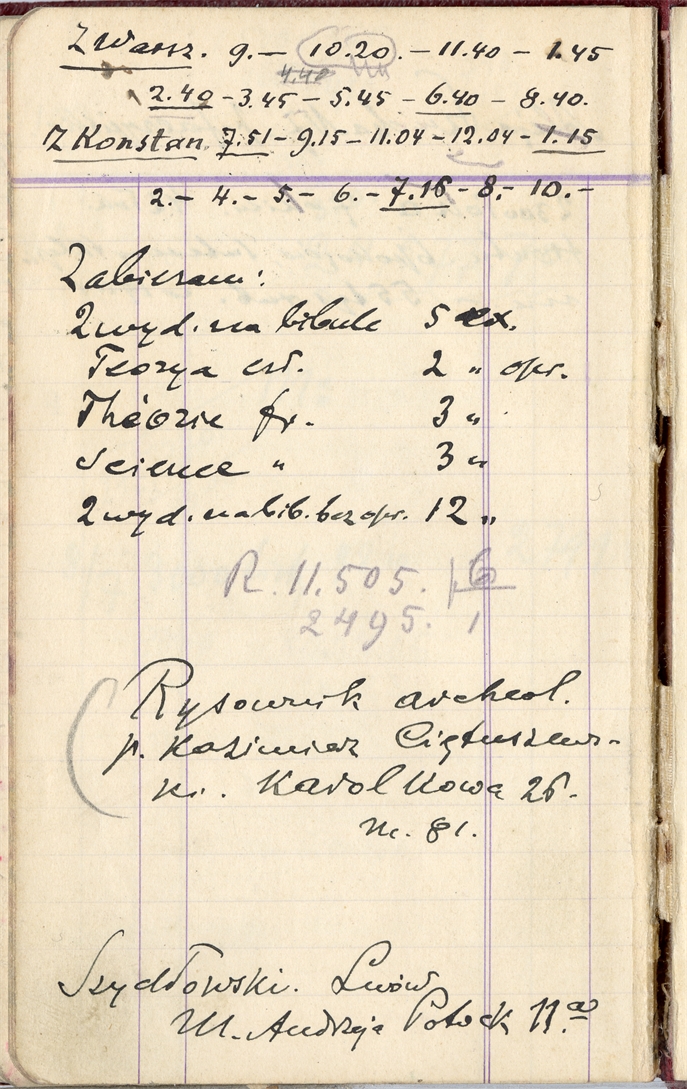 Z Warsz. 9.— 10.20. — 11.40 — 1.45
4.40
2.40 - 3.45 — 5.45 — 6.40 — 8.40.
Z Konstan 7.51 — 9.15 — 11.04 — 12.04 — 1.15
2.— 4.— 5.— 6.— 7.16 - 8.- 10.-
Zabieram:
2 wyd. na bibule 5 ex.
Teorya est. 2 " opr.
Théorie fr. 3 "
Science " 3 "
2 wyd. na bib. bez opr. 12 "
R. 11.505. 16
2495. 1
Rysownik archeol.
p. Kazimierz Ciętuszews-
ki. Karolkowa 26.
m. 81.
Szydłowski. Lwów
Ul. Andrzeja Potock 11.a